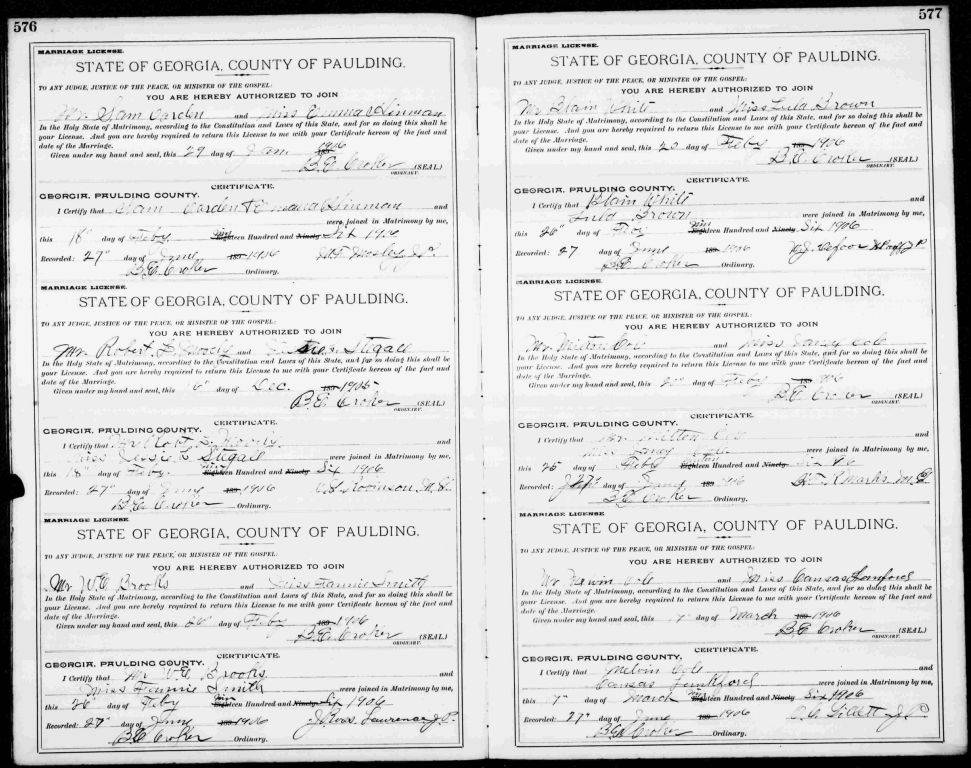 576
MARRIAGE LICENSE.
STATE OF GEORGIA, COUNTY OF PAULDING.
TO ANY JUDGE, JUSTICE OF THE PEACE, OR MINISTER OF THE GOSPEL:
YOU ARE HEREBY AUTHORIZED TO JOIN
Mr. Carden and Miss Emma
In the Holy State of Matrimony, according to the Constitution and Laws of this State, and for so doing this shall be
your License. And you are hereby required to return this License to me with your Certificate hereon of the fact and
date of the Marriage.
Given under my hand and seal, this 29 day of Jany 1906
B.E. Croker (SEAL)
ORDINARY.
CERTIFICATE.
GEORGIA, PAULDING COUNTY.
I Certify that Carden & Emma and
were joined in Matrimony by me,
this 18" day of Feby Eighteen Hundred and Ninety Six 1906
Recorded: 27" day of June 189 1906
B.E. Croker Ordinary.
MARRIAGE LICENSE.
STATE OF GEORGIA, COUNTY OF PAULDING.
TO ANY JUDGE, JUSTICE OF THE PEACE, OR MINISTER OF THE GOSPEL:
YOU ARE HEREBY AUTHORIZED TO JOIN
Mr. Robert and Stegall
In the Holy State of Matrimony, according to the Constitution and Laws of this State, and for so doing this shall be
your License. And you are hereby required to return this License to me with your Certificate hereon of the fact and
date of the Marriage.
Given under my hand and seal, this 6" day of Dec. 189 1905
B.E. Croker (SEAL)
ORDINARY.
CERTIFICATE.
GEORGIA, PAULDING COUNTY.
I Certify that Mr Robt S. and
Miss Jessie L Stegall were joined in Matrimony by me,
this 18" day of Feby Eighteen Hundred and Ninety Six 1906
Recorded: 27" day of June 189 1906 Robinson M.G.
B.E. Croker Ordinary.
MARRIAGE LICENSE.
STATE OF GEORGIA, COUNTY OF PAULDING.
TO ANY JUDGE, JUSTICE OF THE PEACE, OR MINISTER OF THE GOSPEL:
YOU ARE HEREBY AUTHORIZED TO JOIN
Mr W.C. Brooks and Miss Fannie Smith
In the Holy State of Matrimony, according to the Constitution and Laws of this State, and for so doing this shall be
your License. And you are hereby required to return this License to me with your Certificate hereon of the fact and
date of the Marriage.
Given under my hand and seal, this day of Feby 189 1906
B.E. Croker (SEAL)
ORDINARY.
CERTIFICATE.
GEORGIA, PAULDING COUNTY.
I Certify that Mr Brooks and
Miss Fannie Smith were joined in Matrimony by me,
this 26" day of Feby Eighteen Hundred and Ninety Six 1906
Recorded: 27" day of June 189 1906 Lawrence J.P.
B.E. Croker Ordinary.
577
MARRIAGE LICENSE.
STATE OF GEORGIA, COUNTY OF PAULDING.
TO ANY JUDGE, JUSTICE OF THE PEACE, OR MINISTER OF THE GOSPEL:
YOU ARE HEREBY AUTHORIZED TO JOIN
Mr. White and Miss Lula Brown
In the Holy State of Matrimony, according to the Constitution and Laws of this State, and for so doing this shall be
your License. And you are hereby required to return this License to me with your Certificate hereon of the fact and
date of the Marriage.
Given under my hand and seal, this 20 day of Feby 189 1906
B.E. Croker (SEAL)
ORDINARY.
CERTIFICATE.
GEORGIA, PAULDING COUNTY.
I Certify that White and
Lula Brown were joined in Matrimony by me,
this 26" day of Feby Eighteen Hundred and Ninety Six 1906
Recorded: 27 day of June 189 1906
B.E. Croker Ordinary.
MARRIAGE LICENSE.
STATE OF GEORGIA, COUNTY OF PAULDING.
TO ANY JUDGE, JUSTICE OF THE PEACE, OR MINISTER OF THE GOSPEL:
YOU ARE HEREBY AUTHORIZED TO JOIN
Mr. Milton and Miss Cole
In the Holy State of Matrimony, according to the Constitution and Laws of this State, and for so doing this shall be
your License. And you are hereby required to return this License to me with your Certificate hereon of the fact and
date of the Marriage.
Given under my hand and seal, this day of Feby 189 1906
B.E. Croker (SEAL)
ORDINARY.
CERTIFICATE.
GEORGIA, PAULDING COUNTY.
I Certify that Mr. Milton and
Miss were joined in Matrimony by me,
this 25" day of Feby Eighteen Hundred and Ninety
Recorded: day of 189 1906 M.G.
B.E. Croker Ordinary.
MARRIAGE LICENSE.
STATE OF GEORGIA, COUNTY OF PAULDING.
TO ANY JUDGE, JUSTICE OF THE PEACE, OR MINISTER OF THE GOSPEL:
YOU ARE HEREBY AUTHORIZED TO JOIN
Mr. Cole and Miss Cansas
In the Holy State of Matrimony, according to the Constitution and Laws of this State, and for so doing this shall be
your License. And you are hereby required to return this License to me with your Certificate hereon of the fact and
date of the Marriage.
Given under my hand and seal, this day of March 189 1906
B.E. Croker (SEAL)
ORDINARY.
CERTIFICATE.
GEORGIA, PAULDING COUNTY.
I Certify that Melvin Cole and
Cansas were joined in Matrimony by me,
this 7" day of March Eighteen Hundred and Ninety Six 1906
Recorded: 27" day of June 189 1906 J.P.
B.E. Croker Ordinary.